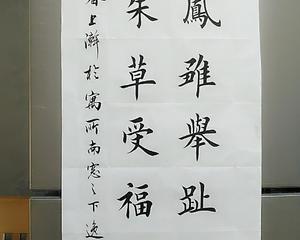 鳳雖舉趾
朱草受福
春上澣於寓所南窻之下逸